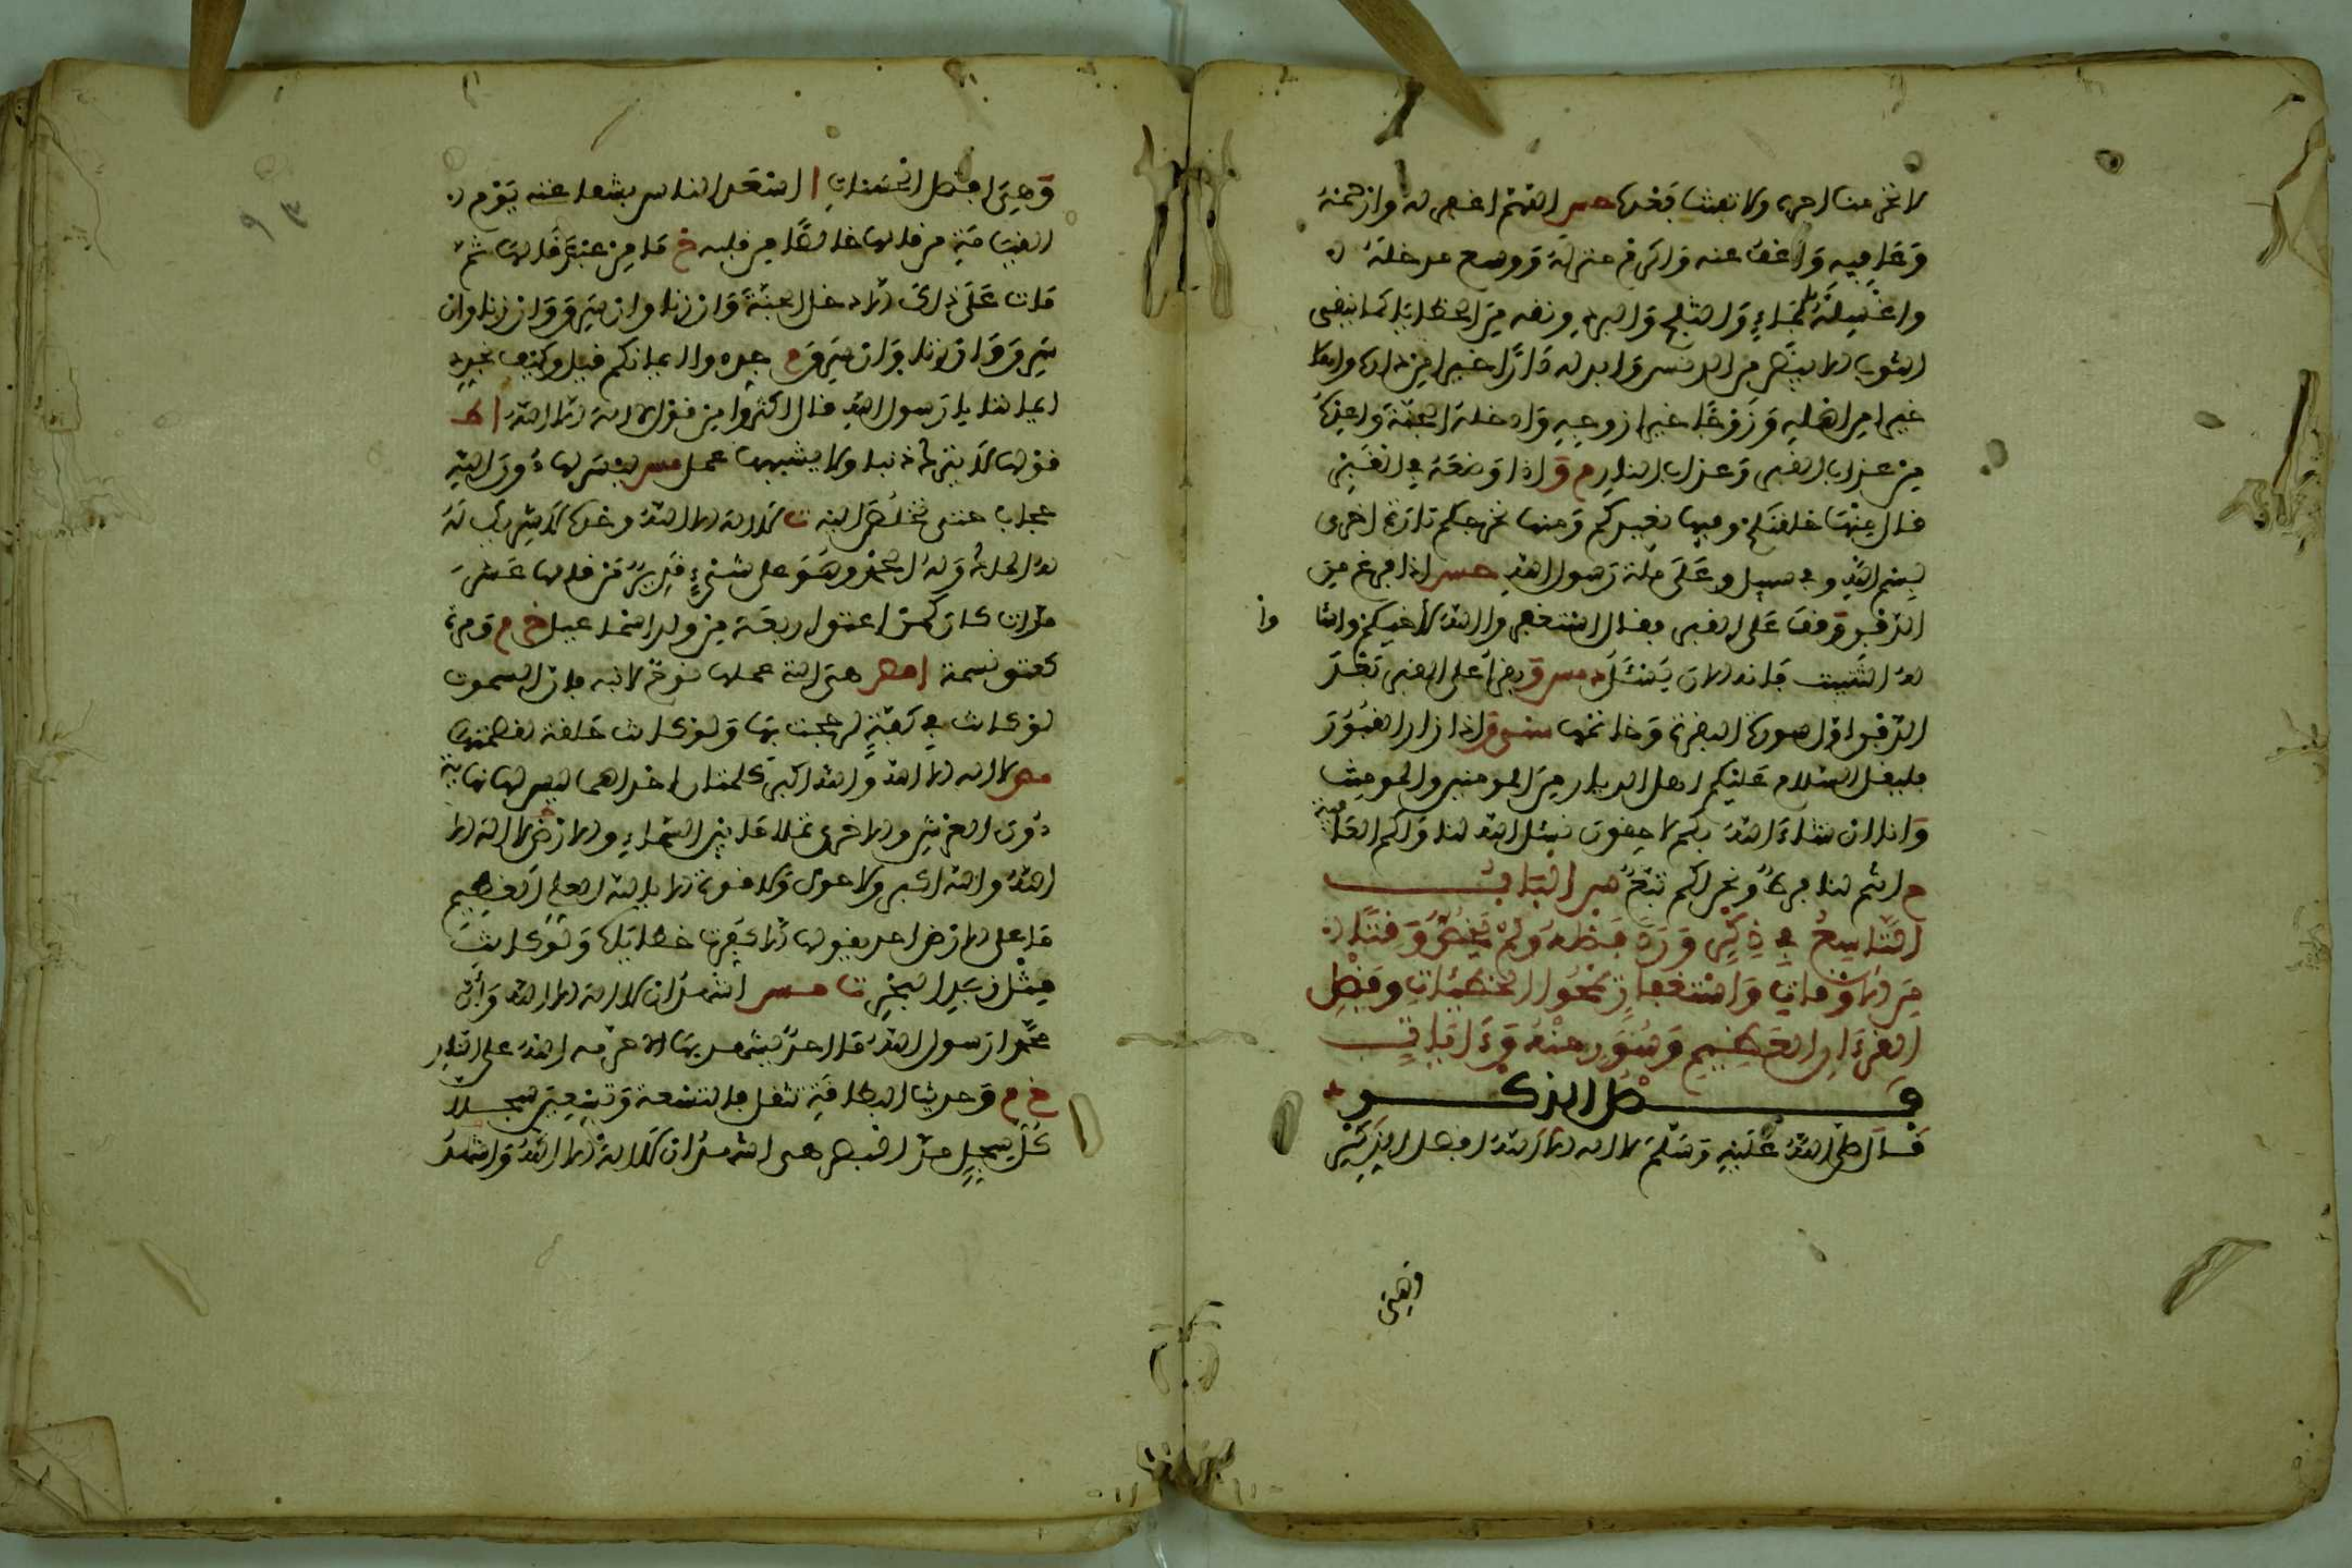 لا تحرمنا اجره ولا تفتنا بعده حب اللهم اغفر له وارحمه
وعافيه واعف عنه واكرم منزله ووسع مدخله
واغسله بالماء والثلج والبرد ونقه من الخطايا كما ينقى
الثوب الابيض من الدنس وابدله دارا خيرا من داره واهلا
خيرا من اهله وزوجا خيرا من زوجه وادخله الجنة واعذه
من عذاب القبر وعذاب النار م واذا وضعه في القبر
قال منها خلقنكم وفيها نعيدكم ومنها نخرجكم تارة اخرى
بسم الله وفي سبيل وعلى ملة رسول الله مس اذا فرغ من
الدفن وقف على القبر فقال استغفروا الله لاخيكم واسئلوا
له التثبيت فانه الان يسئل د مس ويقرا على القبر بعد
الدفن اول سورة البقرة وخاتمتها سني واذا زار القبور
فليقل السلام عليكم اهل الديار من المومنين والمومنت
وانا ان شاء الله بكم لاحقون نسئل الله لنا ولكم العافية
م انتم لنا فرط ونحن لكم تبع س الباب
التاسع في ذكر ورد فضله ولم يخص وقتا
من الاوقات واستغفار تمحوا الخطيئات وفضل
القرءان العظيم وسور منه وءايات
فضل الذكر
قال صلى الله عليه وسلم لا اله الا الله افضل الذكر
وهي
وهي افضل الحسنات ا اسعد الناس بشفاعته يوم
القيامة من قالها خالصا من قلبه خ ما من عبد قالها ثم
مات على ذلك الا دخل الجنة وان زنا وان سرق وان زنا وان
سرق وان زنا وان سرق م جددوا ايمانكم قيل وكيف نجدد
ايماننا يا رسول الله قال اكثروا من قول لا اله الا الله ا ط
قولها لا يترك ذنبا ولا يشبهها عمل مس ليس لها دون الله
حجاب حتى تخلص اليه ت لا اله الا الله وحده لا شريك له
له الملك وله الحمد وهو على كل شيء قدير من قالها عشر
مرات كان كمن اعتق اربعة من ولد اسماعيل خ م ومرة
كعتق نسمة ا مص هي التي علمها نوح لابنه فان السموت
لو كانت في كفة لرجحت بها ولو كانت حلقة لفصمتها
مص لا اله الا الله والله اكبر كلمتان احداهما ليس لها نهاية
دون العرش والاخرى تملا ما بين السماء والارض لا اله الا
الله والله اكبر ولا حول ولا قوة الا بالله العلي العظيم
ما على الارض احد يقولها الا كفرت خطاياه ولو كانت
مثل زبد البحر ت مس اشهد ان لا اله الا الله وان
محمدا رسول الله ما احد يشهد بها الا حرمه الله على النار
خ م وحديث البطاقة تثقل بالتسعة وتسعين سجلا
كل سجل مد البصر هي اشهد ان لا اله الا الله واشهد